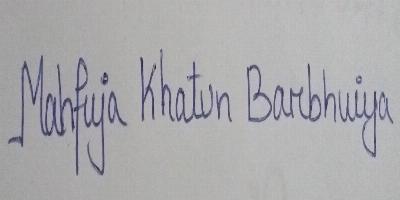 Mahfuja Khatun Barbhuiya